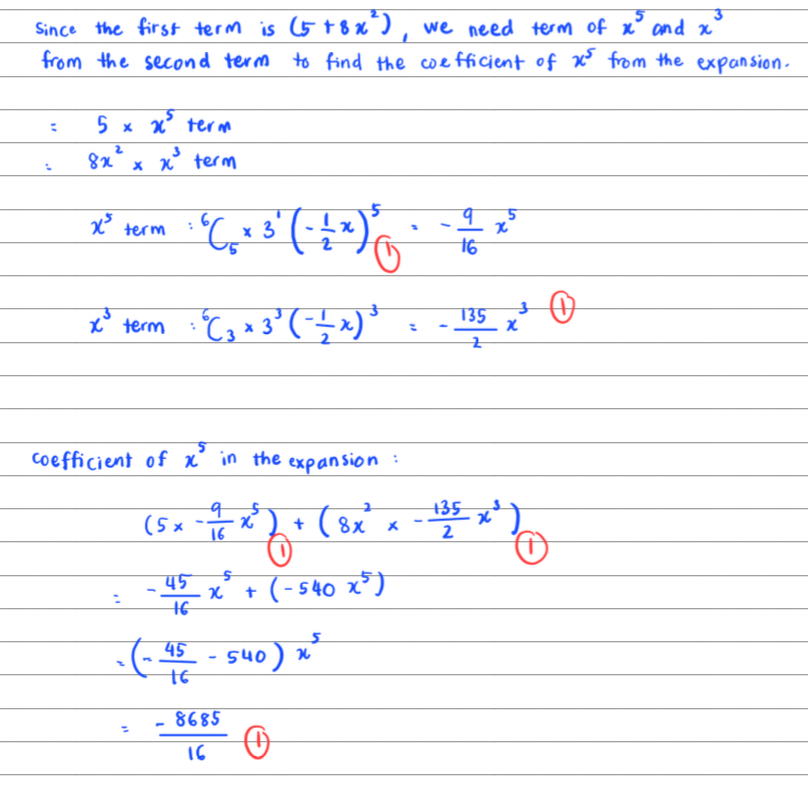 Since the first term is (5 + 8x²), we need term of x⁵ and x³
from the second term to find the coefficient of x⁵ from the expansion.
= 5 × x⁵ term
: 8x² × x³ term
x⁵ term : ⁶C₅ × 3¹ (-1/2 x)⁵ = -9/16 x⁵ ①
x³ term : ⁶C₃ × 3³ (-1/2 x)³ = -135/2 x³ ①
coefficient of x⁵ in the expansion :
(5 × -9/16 x⁵) ① + (8x² × -135/2 x³) ①
= -45/16 x⁵ + (-540 x⁵)
= (-45/16 - 540) x⁵
= -8685/16 ①